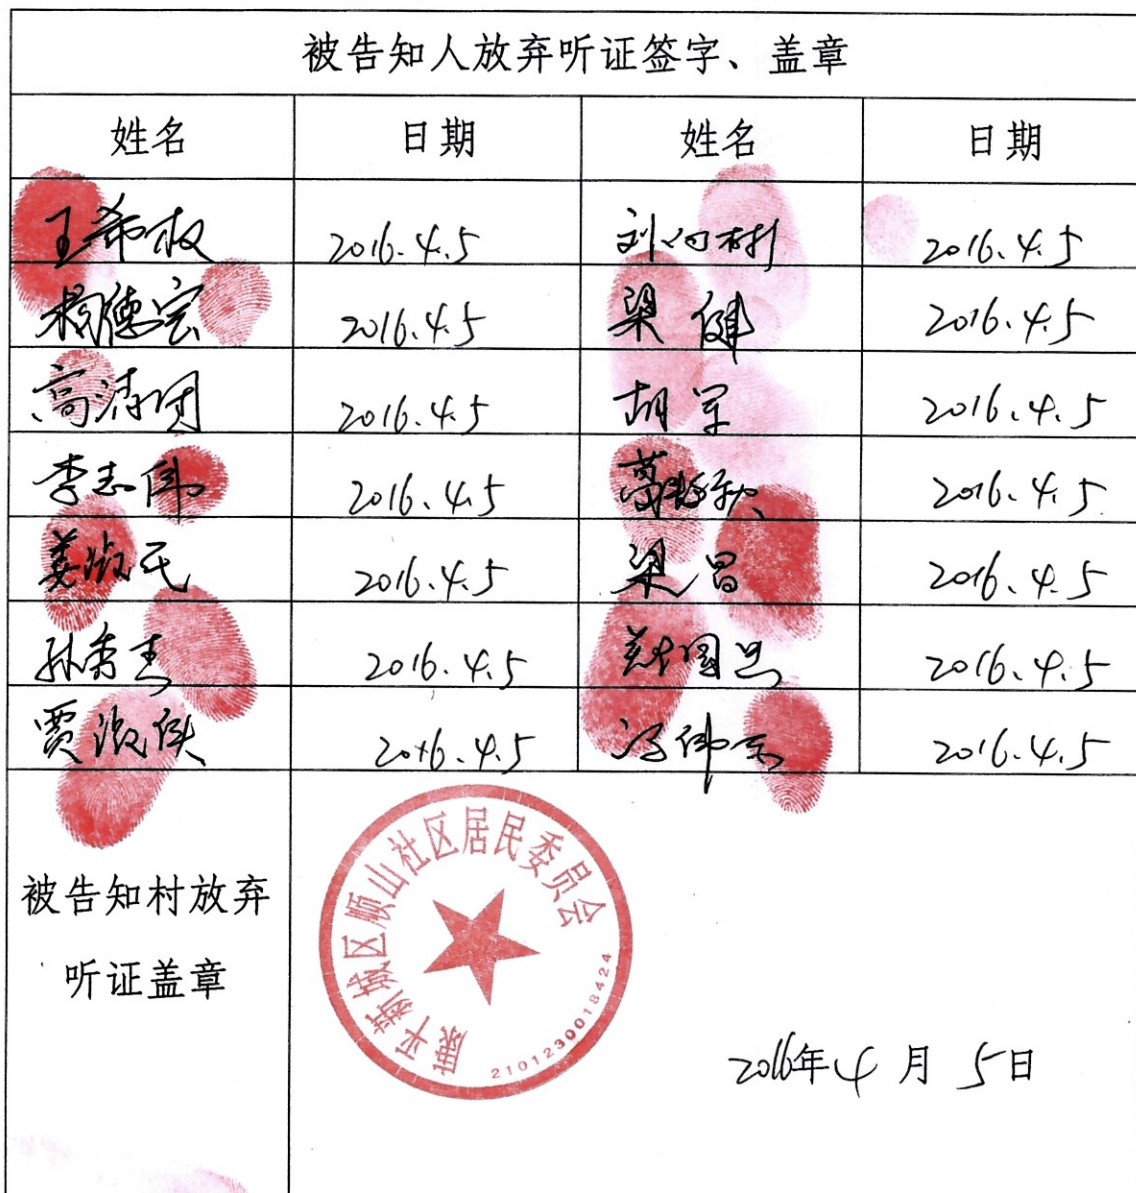 被告知人放弃听证签字、盖章
姓名 日期 姓名 日期
王希权 2016.4.5 2016.4.5
杨德宏 2016.4.5 梁健 2016.4.5
2016.4.5 胡军 2016.4.5
李志伟 2016.4.5 2016.4.5
姜淑元 2016.4.5 梁昌 2016.4.5
2016.4.5 2016.4.5
贾淑侠 2016.4.5 2016.4.5
被告知村放弃
听证盖章
康平新城区顺山社区居民委员会
2101230018424
2016年4月5日